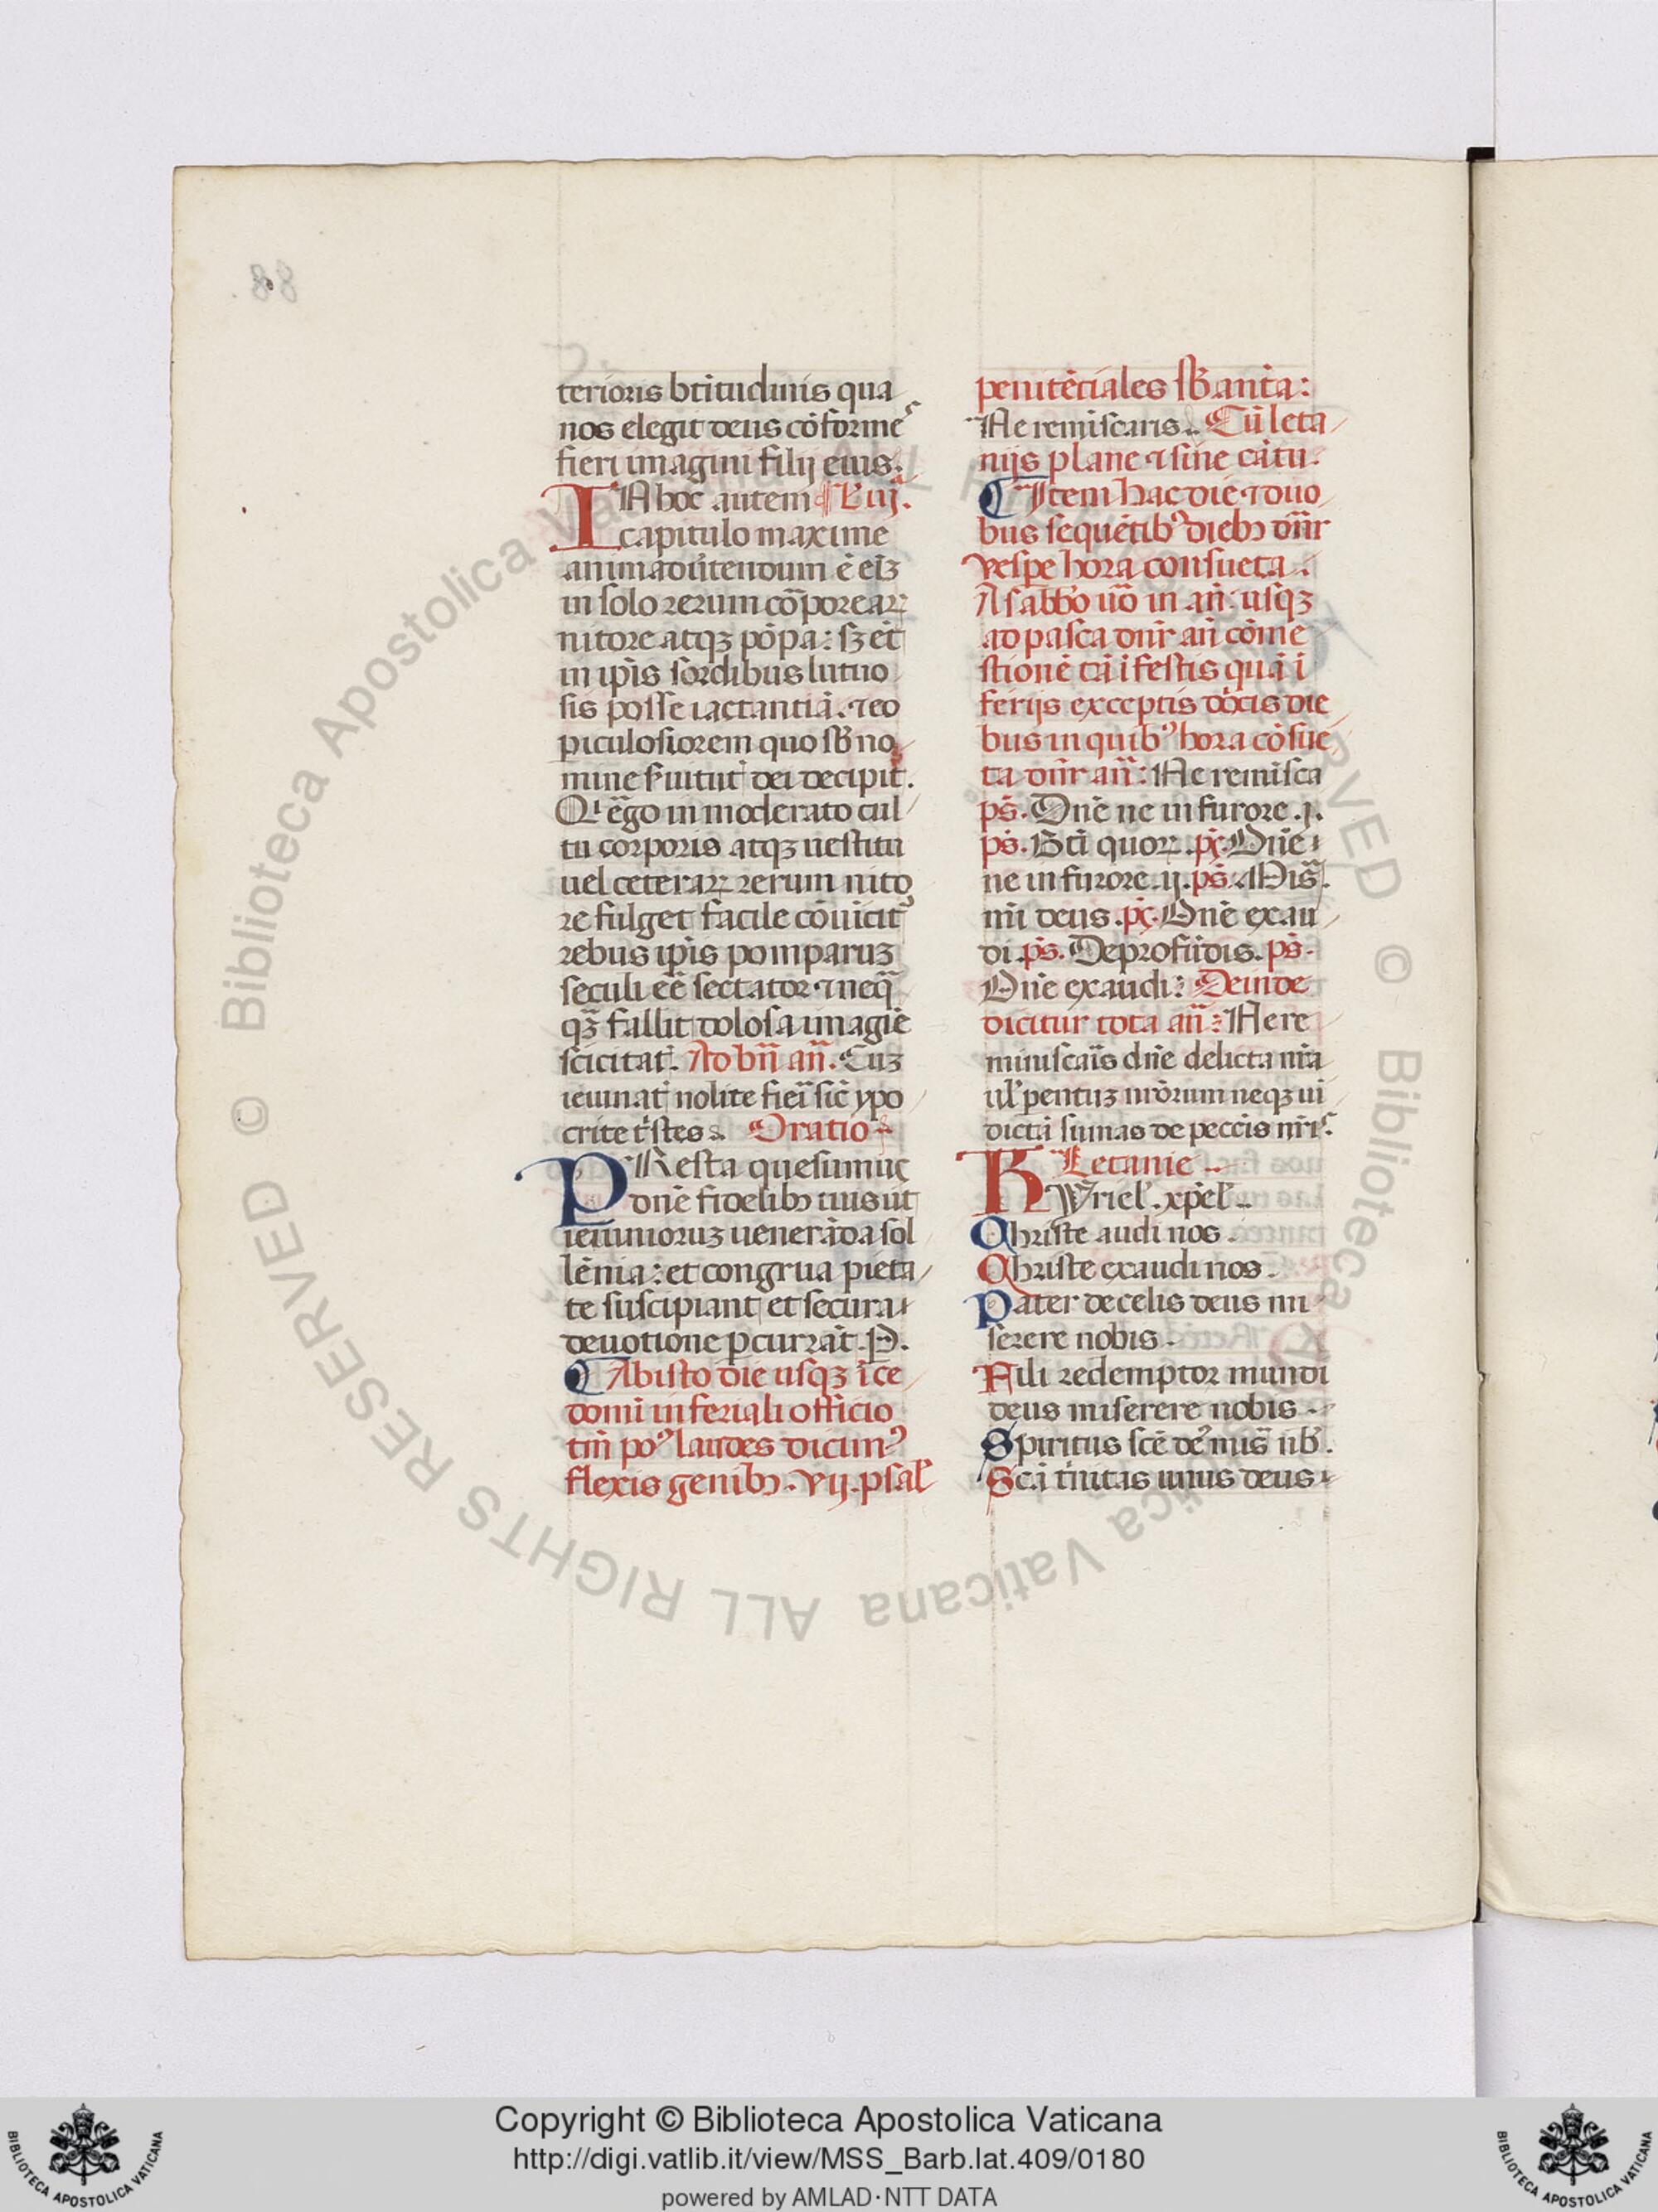 88
terioris btitudinis qua
nos elegit deus cōforme
fieri imagini filij eius.
IN hoc autem L' iij.
capitulo maxime
animaduertendum ē eīz
in solo rerum cōporeaꝝ
nitore atqꝫ pōpa: sꝫ et
in ip̄is sordibus lutuo
sis posse iactantiā. ⁊ eo
ꝑiculosiorem quo sb no
mine s̓uitut̓ dei decipit.
Qi ēgo in moderato cul
tu corporis atqꝫ uestitu
uel ceteraꝝ rerum nito
re fulget facile cōuicit᷒
rebus ip̄is pomparuꝫ
seculi eē sectator ⁊ neq̄
qꝫ fallit dolosa imagīe
scicitat. Ad bn̄ an̄. Cuꝫ
ieiunat̓ nolite fieri sic̄ ypo
crite t̓stes. Oratio
PResta quesumus
dn̄e fidelibꝫ tuis ut
ieiunioruꝫ uenerāda sol
lēnia: et congrua pieta
te suscipiant et secura
deuotione ꝑcurrāt. P.
Ab isto die usqꝫ ī ce
domi in feriali officio
tm̄ po᷒ laudes dicim᷒
flexis genibꝫ. vij. psal'
penitēciales sb anīa:
Ne reminiscaris. Cū leta
nijs plane ⁊ sine cātu.
Item hac die ⁊ duo
bus sequētib᷒ diebꝫ dn̄r
vesꝑe hora consueta.
A sabb'o ūo in an̄. usqꝫ
ad pasca dn̄r an̄ cōme
stionē tā ī festis quā ī
ferijs exceptis dōcis die
bus in quib᷒ hora cōsue
ta dn̄r an̄: Ne reminisca
ps̄. Dn̄e ne in furore. j.
ps̄. Bt̄i quoꝝ. ps̄. Dn̄e
ne in furore. ij. ps̄. Mis̄.
mī deus. ps̄. Dn̄e exau
di. ps̄. De profūdis. ps̄.
Dn̄e exaudi: Deinde
dicitur tota an̄: Ne re
miniscar̄is dn̄e delicta nr̄a
ul' ꝑentuꝫ nrōrum neqꝫ ui
dictā sumas de pecc̄is nr̄is.
Letanie
KYriel'. xp̄el'.
Christe audi nos.
Christe exaudi nos.
Pater de celis deus mi
serere nobis.
Fili redemptor mundi
deus miserere nobis.
Spiritus scē de᷒ mis̄ nb̄.
Scā t̓nitas unus deus
© Biblioteca Apostolica Vaticana ALL RIGHTS RESERVED
Copyright © Biblioteca Apostolica Vaticana
http://digi.vatlib.it/view/MSS_Barb.lat.409/0180
powered by AMLAD·NTT DATA
BIBLIOTECA APOSTOLICA VATICANA
BIBLIOTECA APOSTOLICA VATICANA